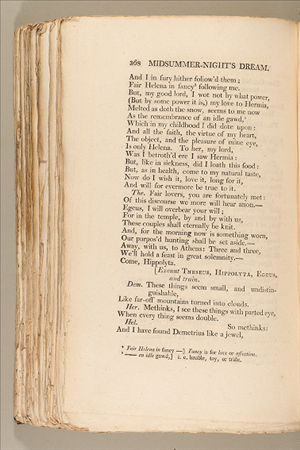 268 MIDSUMMER-NIGHT'S DREAM.
And I in fury hither follow'd them;
Fair Helena in fancy¹ following me.
But, my good lord, I wot not by what power,
(But by some power it is,) my love to Hermia,
Melted as doth the snow, seems to me now
As the remembrance of an idle gawd,²
Which in my childhood I did dote upon:
And all the faith, the virtue of my heart,
The object, and the pleasure of mine eye,
Is only Helena. To her, my lord,
Was I betroth'd ere I saw Hermia:
But, like in sickness, did I loath this food:
But, as in health, come to my natural taste,
Now do I wish it, love it, long for it,
And will for evermore be true to it.
The. Fair lovers, you are fortunately met:
Of this discourse we more will hear anon.—
Egeus, I will overbear your will;
For in the temple, by and by with us,
These couples shall eternally be knit.
And, for the morning now is something worn,
Our purpos'd hunting shall be set aside.—
Away, with us, to Athens: Three and three,
We'll hold a feast in great solemnity.—
Come, Hippolyta.
[Exeunt THESEUS, HIPPOLYTA, EGEUS,
and train.
Dem. These things seem small, and undistin-
guishable,
Like far-off mountains turned into clouds.
Her. Methinks, I see these things with parted eye,
When every thing seems double.
Hel. So methinks:
And I have found Demetrius like a jewel,
¹ Fair Helena in fancy —] Fancy is for love or affection.
² —— an idle gawd,] i. e. bauble, toy, or trifle.